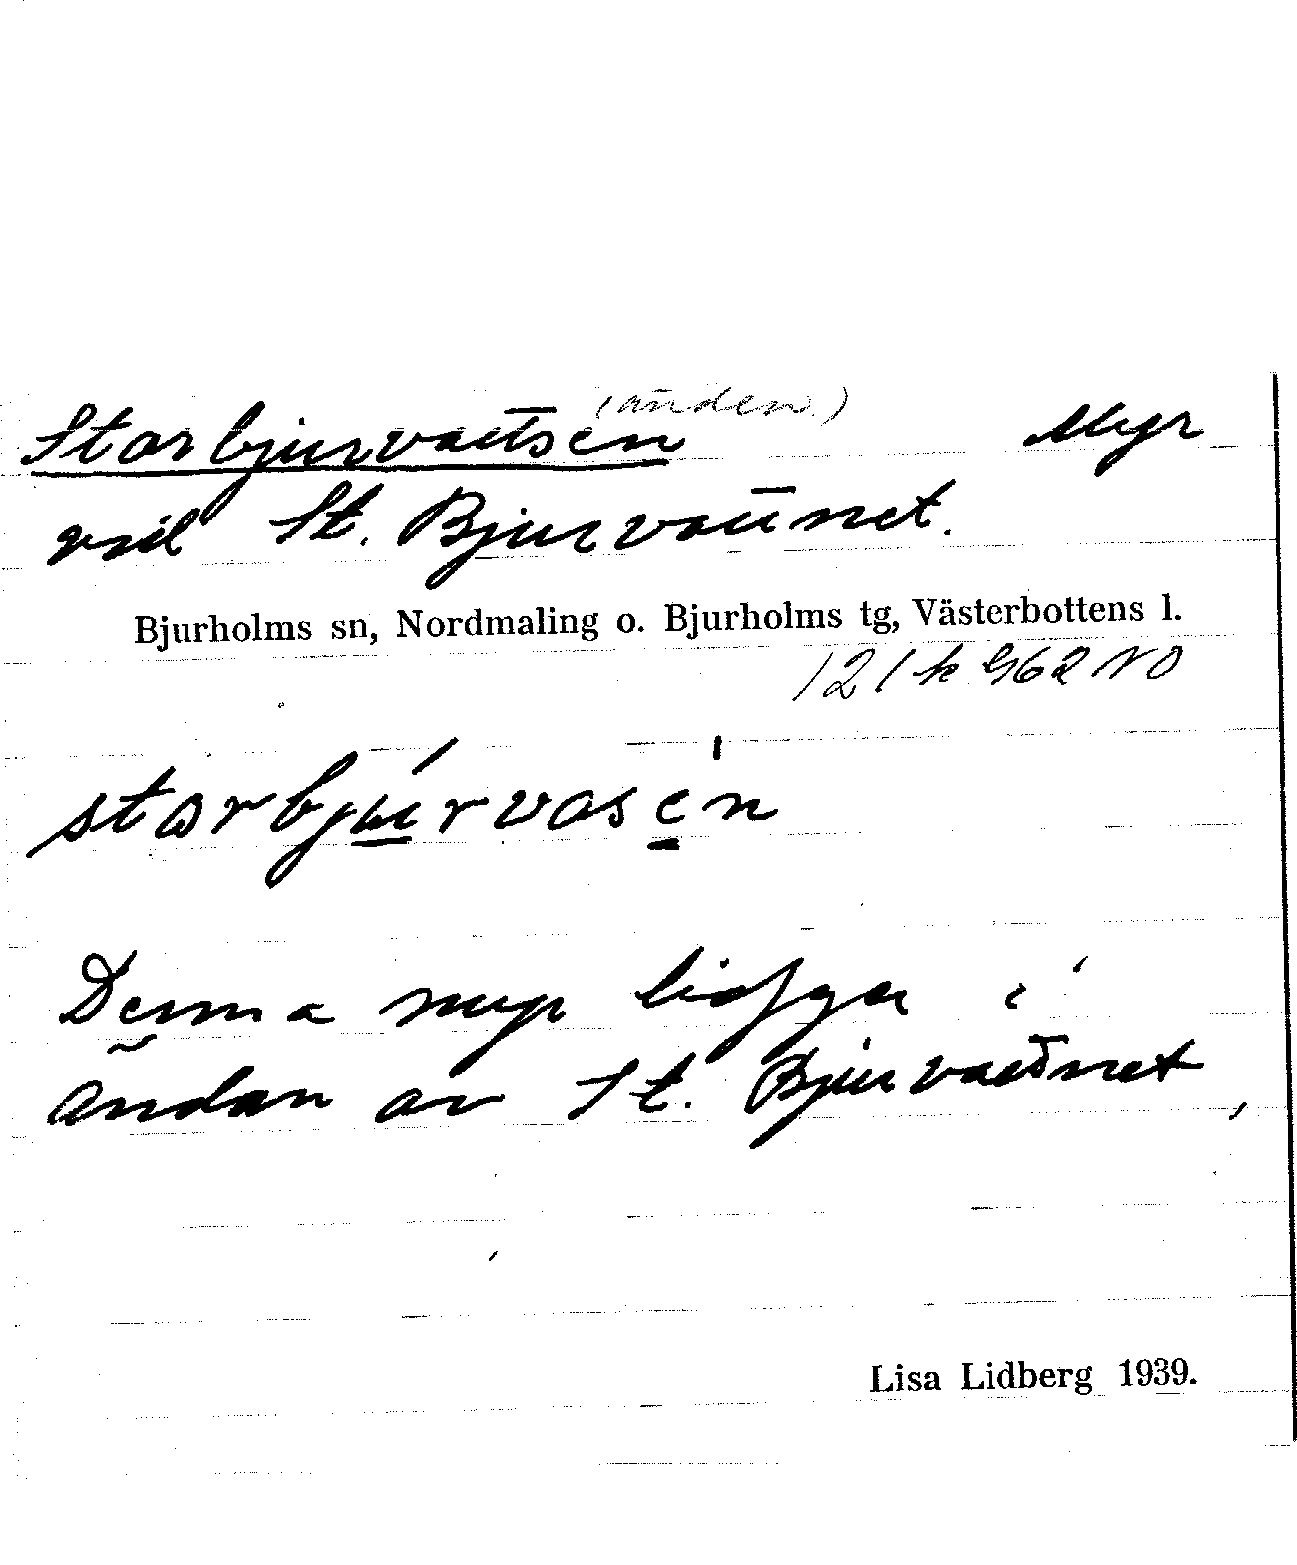 Storbjurvattsän (änden) Myr
vid St. Bjurvattnet.
Bjurholms sn, Nordmaling o. Bjurholms tg, Västerbottens l.
121 k 962 NO
storbjúrvasén
Denna myr ligger i
ändan av St. Bjurvattnet,
Lisa Lidberg 1939.